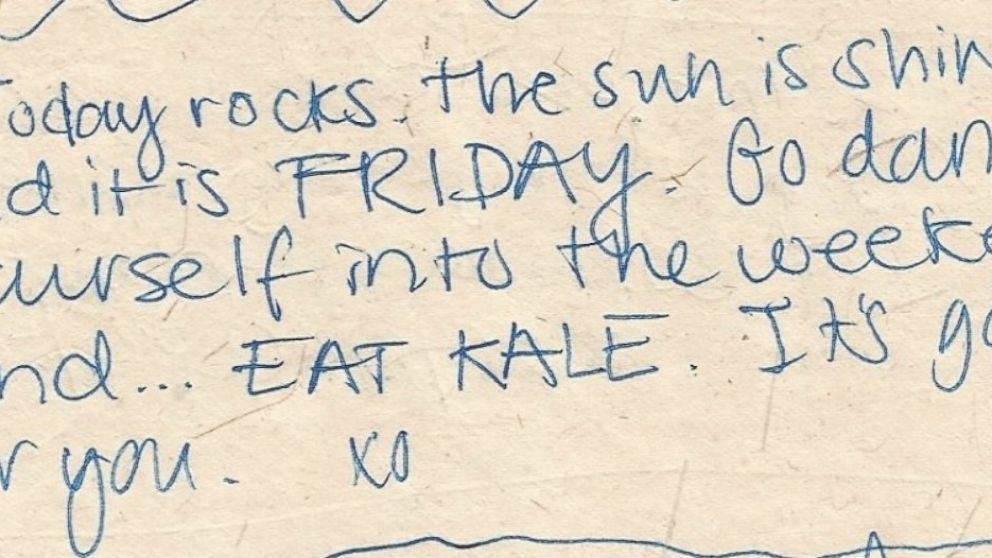 Today rocks. the sun is shin
d it is FRIDAY. Go dan
urself into the weeke
nd... EAT KALE. It's go
r you. xo